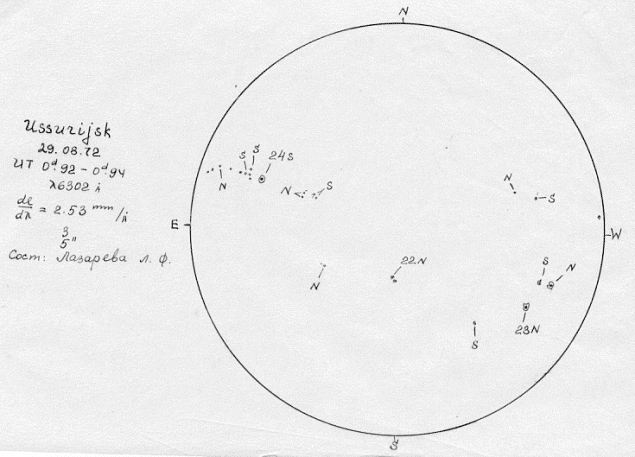 N
Ussurijsk
29.08.72
UT 0ᵈ.92 – 0ᵈ.94
λ6302 Å
dℓ/dλ = 2.53 mm/Å
3
5"
Сост: Лазарева Л. Ф.
S S 24S
N
N S
N
S
E
W
N
22N
S N
23N
S
S